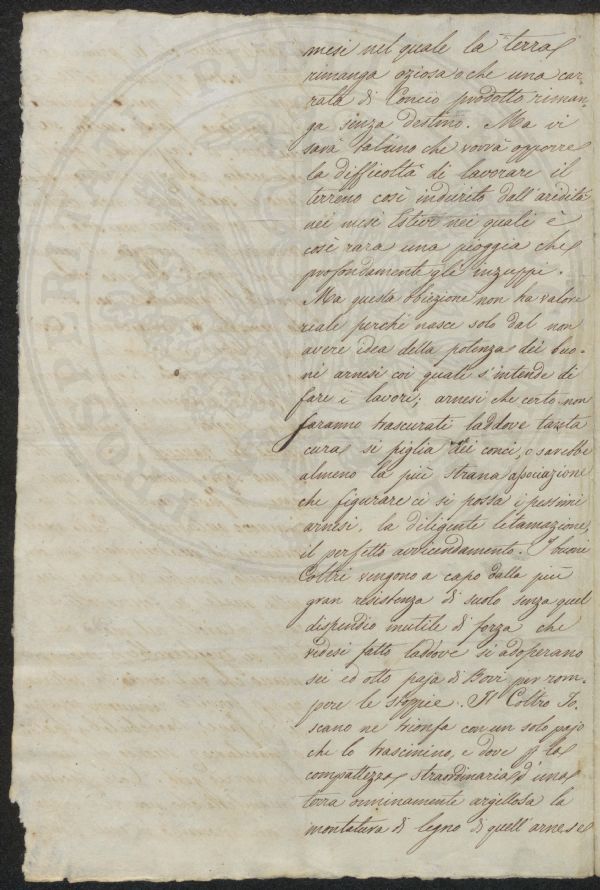 mesi nel quale la terra
rimanga oziosa o che una car
rata di Concio prodotto riman
ga senza destino. Ma vi
sarà taluno che vorrà opporre
la difficoltà di lavorare il
terreno così indurito dall'aridità
nei mesi Estivi nei quali è
così rara una pioggia che
profondamente gli inzuppi.
Ma questa obiezione non ha valore
reale perché nasce solo dal non
avere idea della potenza dei buo-
ni arnesi coi quali s'intende di
fare i lavori; arnesi che certo non
saranno trascurati laddove tanta
cura si piglia dei conci, o sarebbe
almeno la più strana associazione
che figurare ci si possa i pessimi
arnesi, la diligente letamazione,
il perfetto avvicendamento. I buoni
Coltri vengono a capo dalla più
gran resistenza di suolo senza quel
dispendio inutile di forza che
vedesi fatto laddove si adoperano
sei ed otto paja di Bovi per rom
pere le stoppie. Il Coltro To
scano ne trionfa con un solo pajo
che lo trascinino, e dove p la
compattezza straordinaria d'una
terra onninamente argillosa la
montatura di legno di quell'arnese